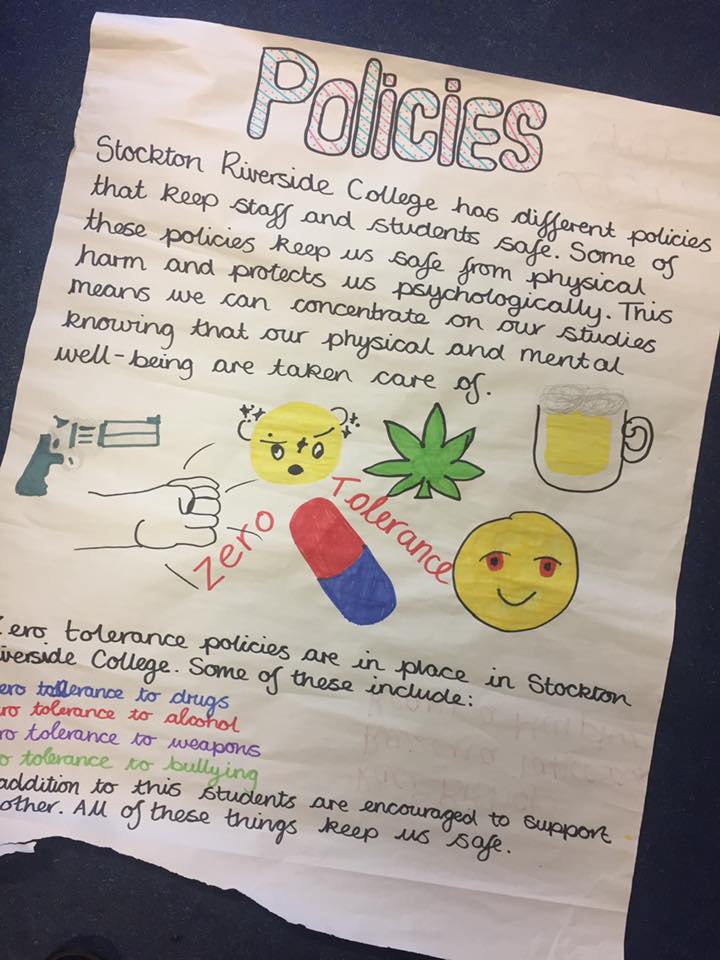 Policies
Stockton Riverside College has different policies
that keep staff and students safe. Some of
these policies keep us safe from physical
harm and protects us psychologically. This
means we can concentrate on our studies
knowing that our physical and mental
well-being are taken care of.
Zero Tolerance
ero tolerance policies are in place in Stockton
iverside College. Some of these include:
ero tollerance to drugs
ro tolerance to alcohol
ro tolerance to weapons
o tolerance to bullying
addition to this students are encouraged to support
other. All of these things keep us safe.